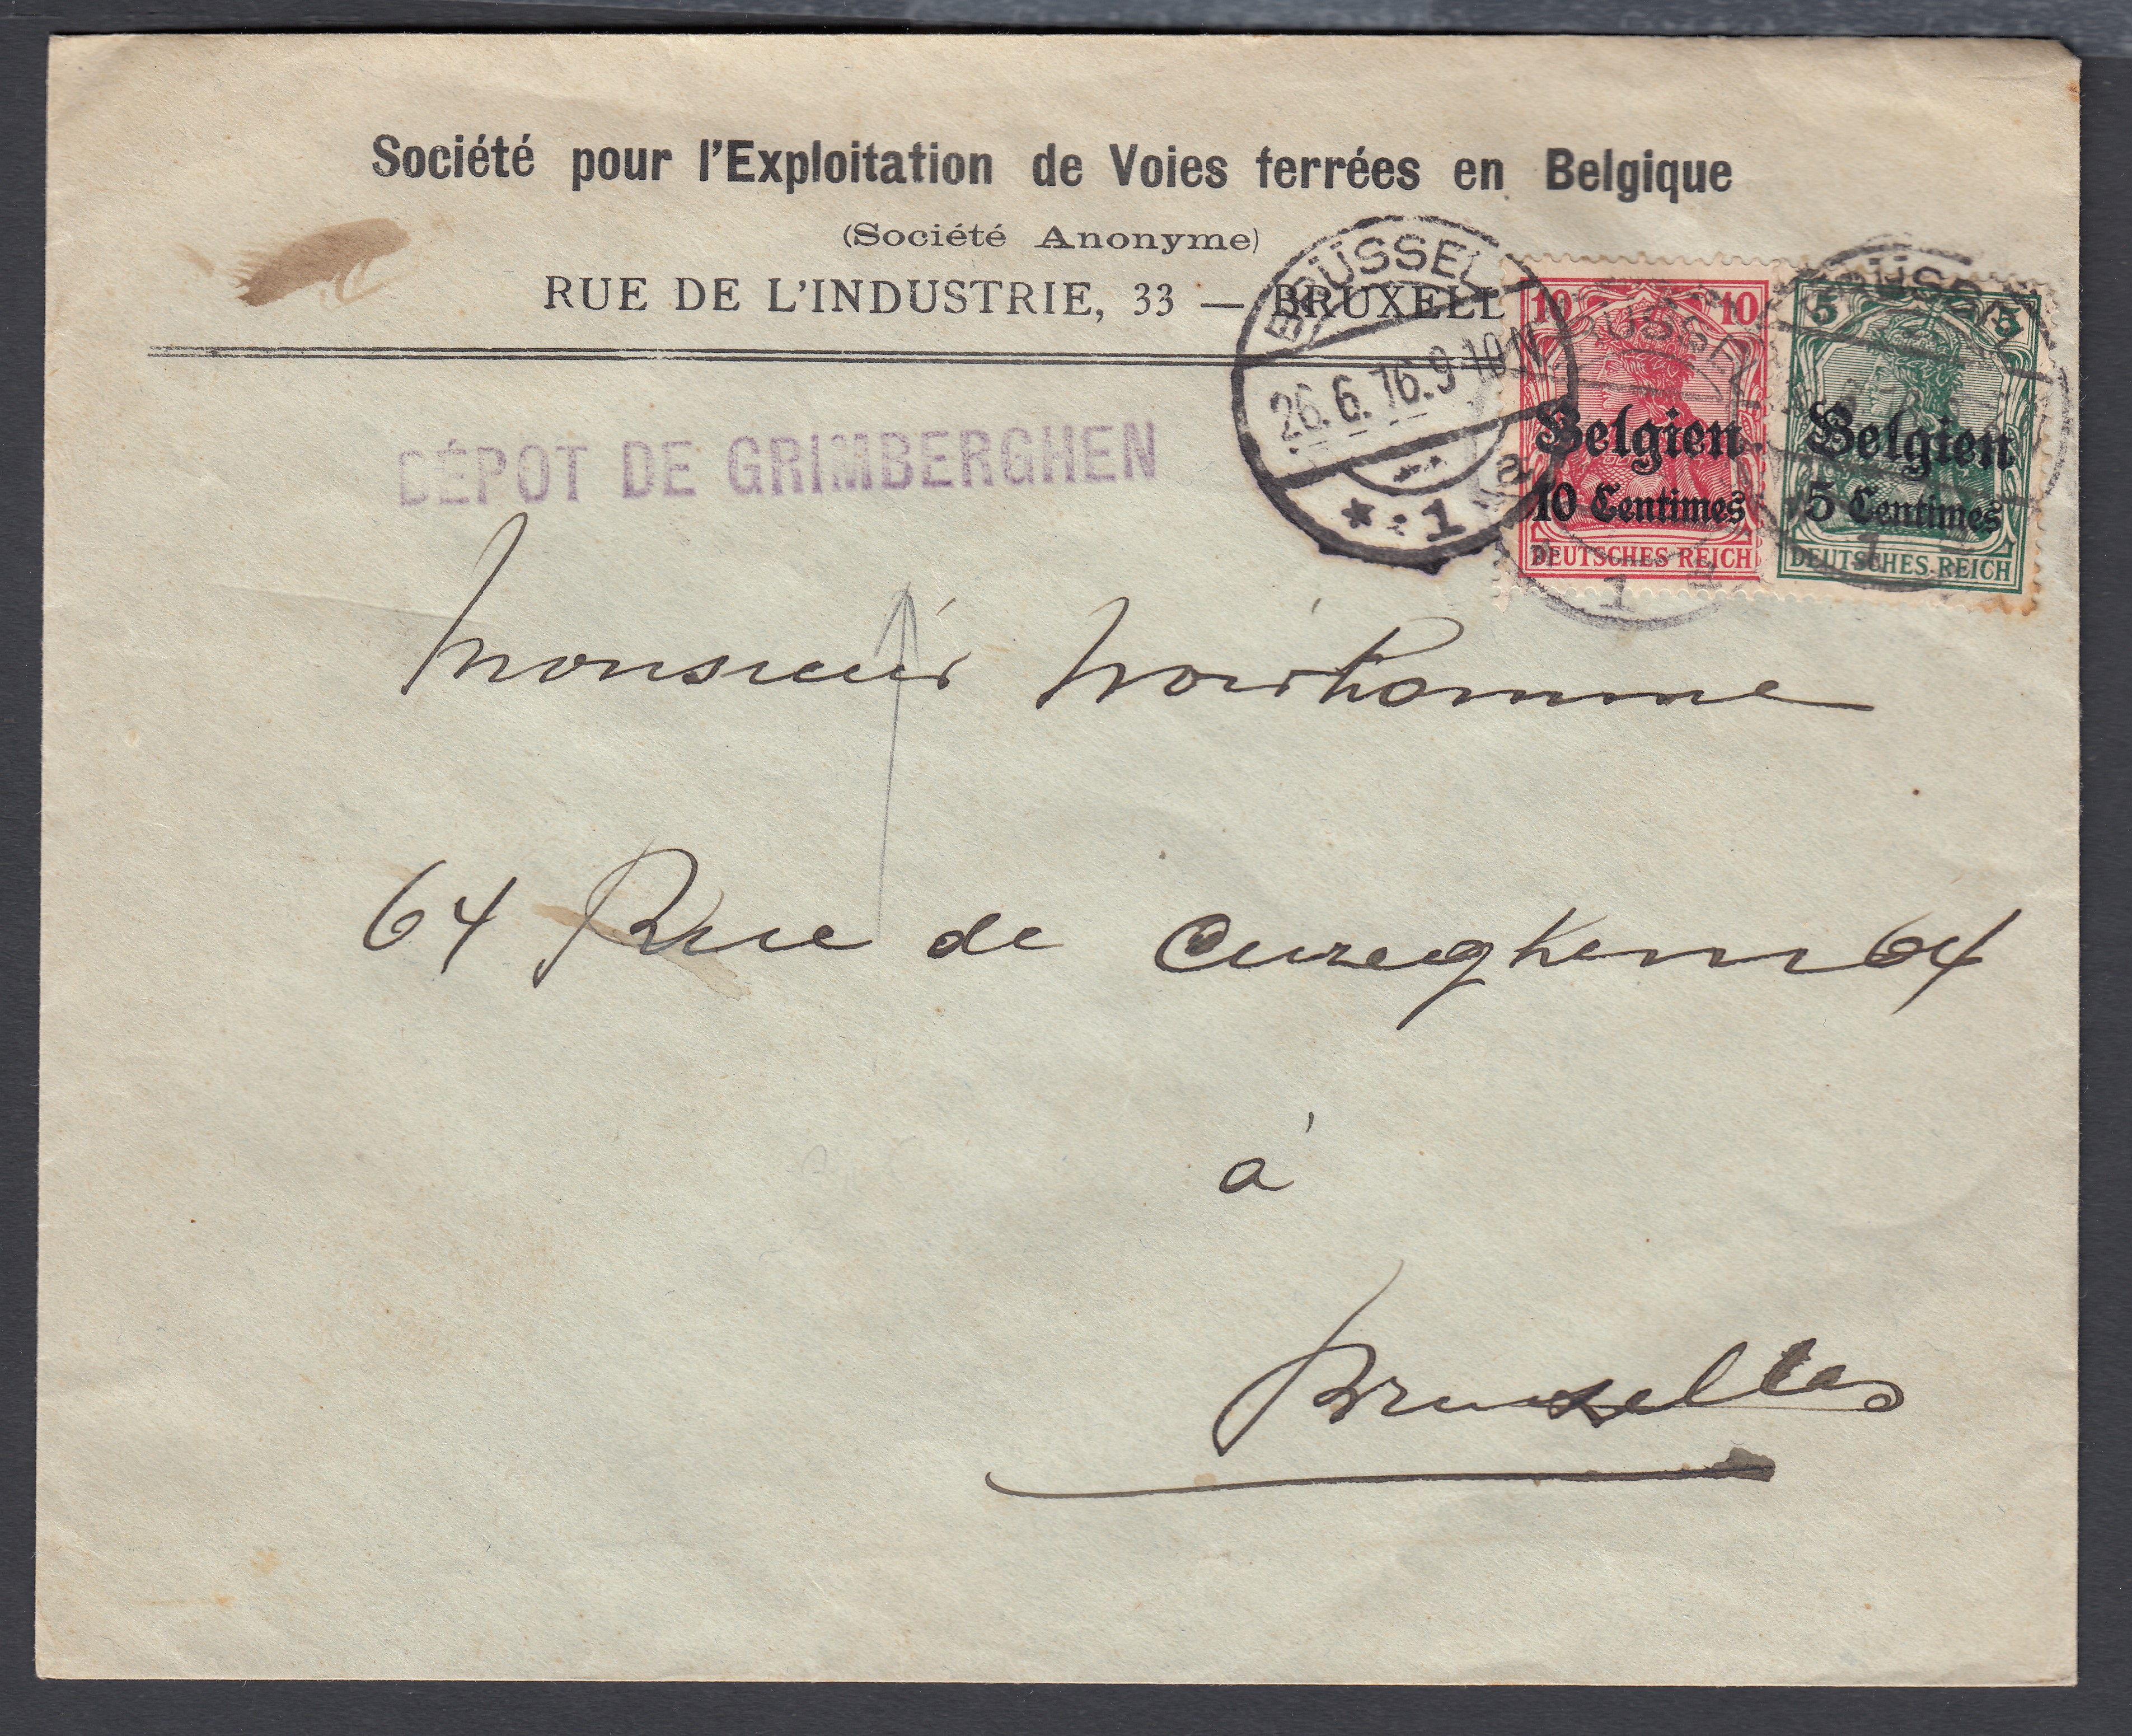 Société pour l'Exploitation de Voies ferrées en Belgique
(Société Anonyme)
RUE DE L'INDUSTRIE, 33 — BRUXELL
BRÜSSEL
26.6.16.9-10N
* 1 a
10 10
Belgien
10 Centimes
DEUTSCHES REICH
5 5
Belgien
5 Centimes
DEUTSCHES REICH
BRÜSSEL
1
BRÜSSEL
1
DÉPOT DE GRIMBERGHEN
Monsieur Noirhomme
64 Rue de Cureghem 64
à
Bruxelles